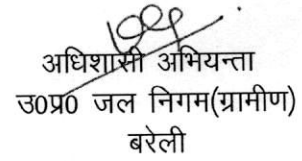 अधिशासी अभियन्ता
उ0प्र0 जल निगम(ग्रामीण)
बरेली